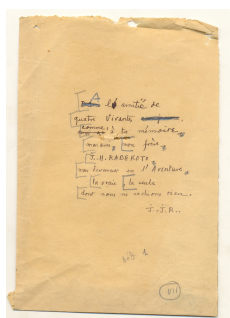 A l'amitié de
quatre vivants
comme à la mémoire
mon frère
J.H. RABEKOTO
l'Aventure
la vraie, la seule
dont nous ne sachions rien.
J.-J.R..
VII